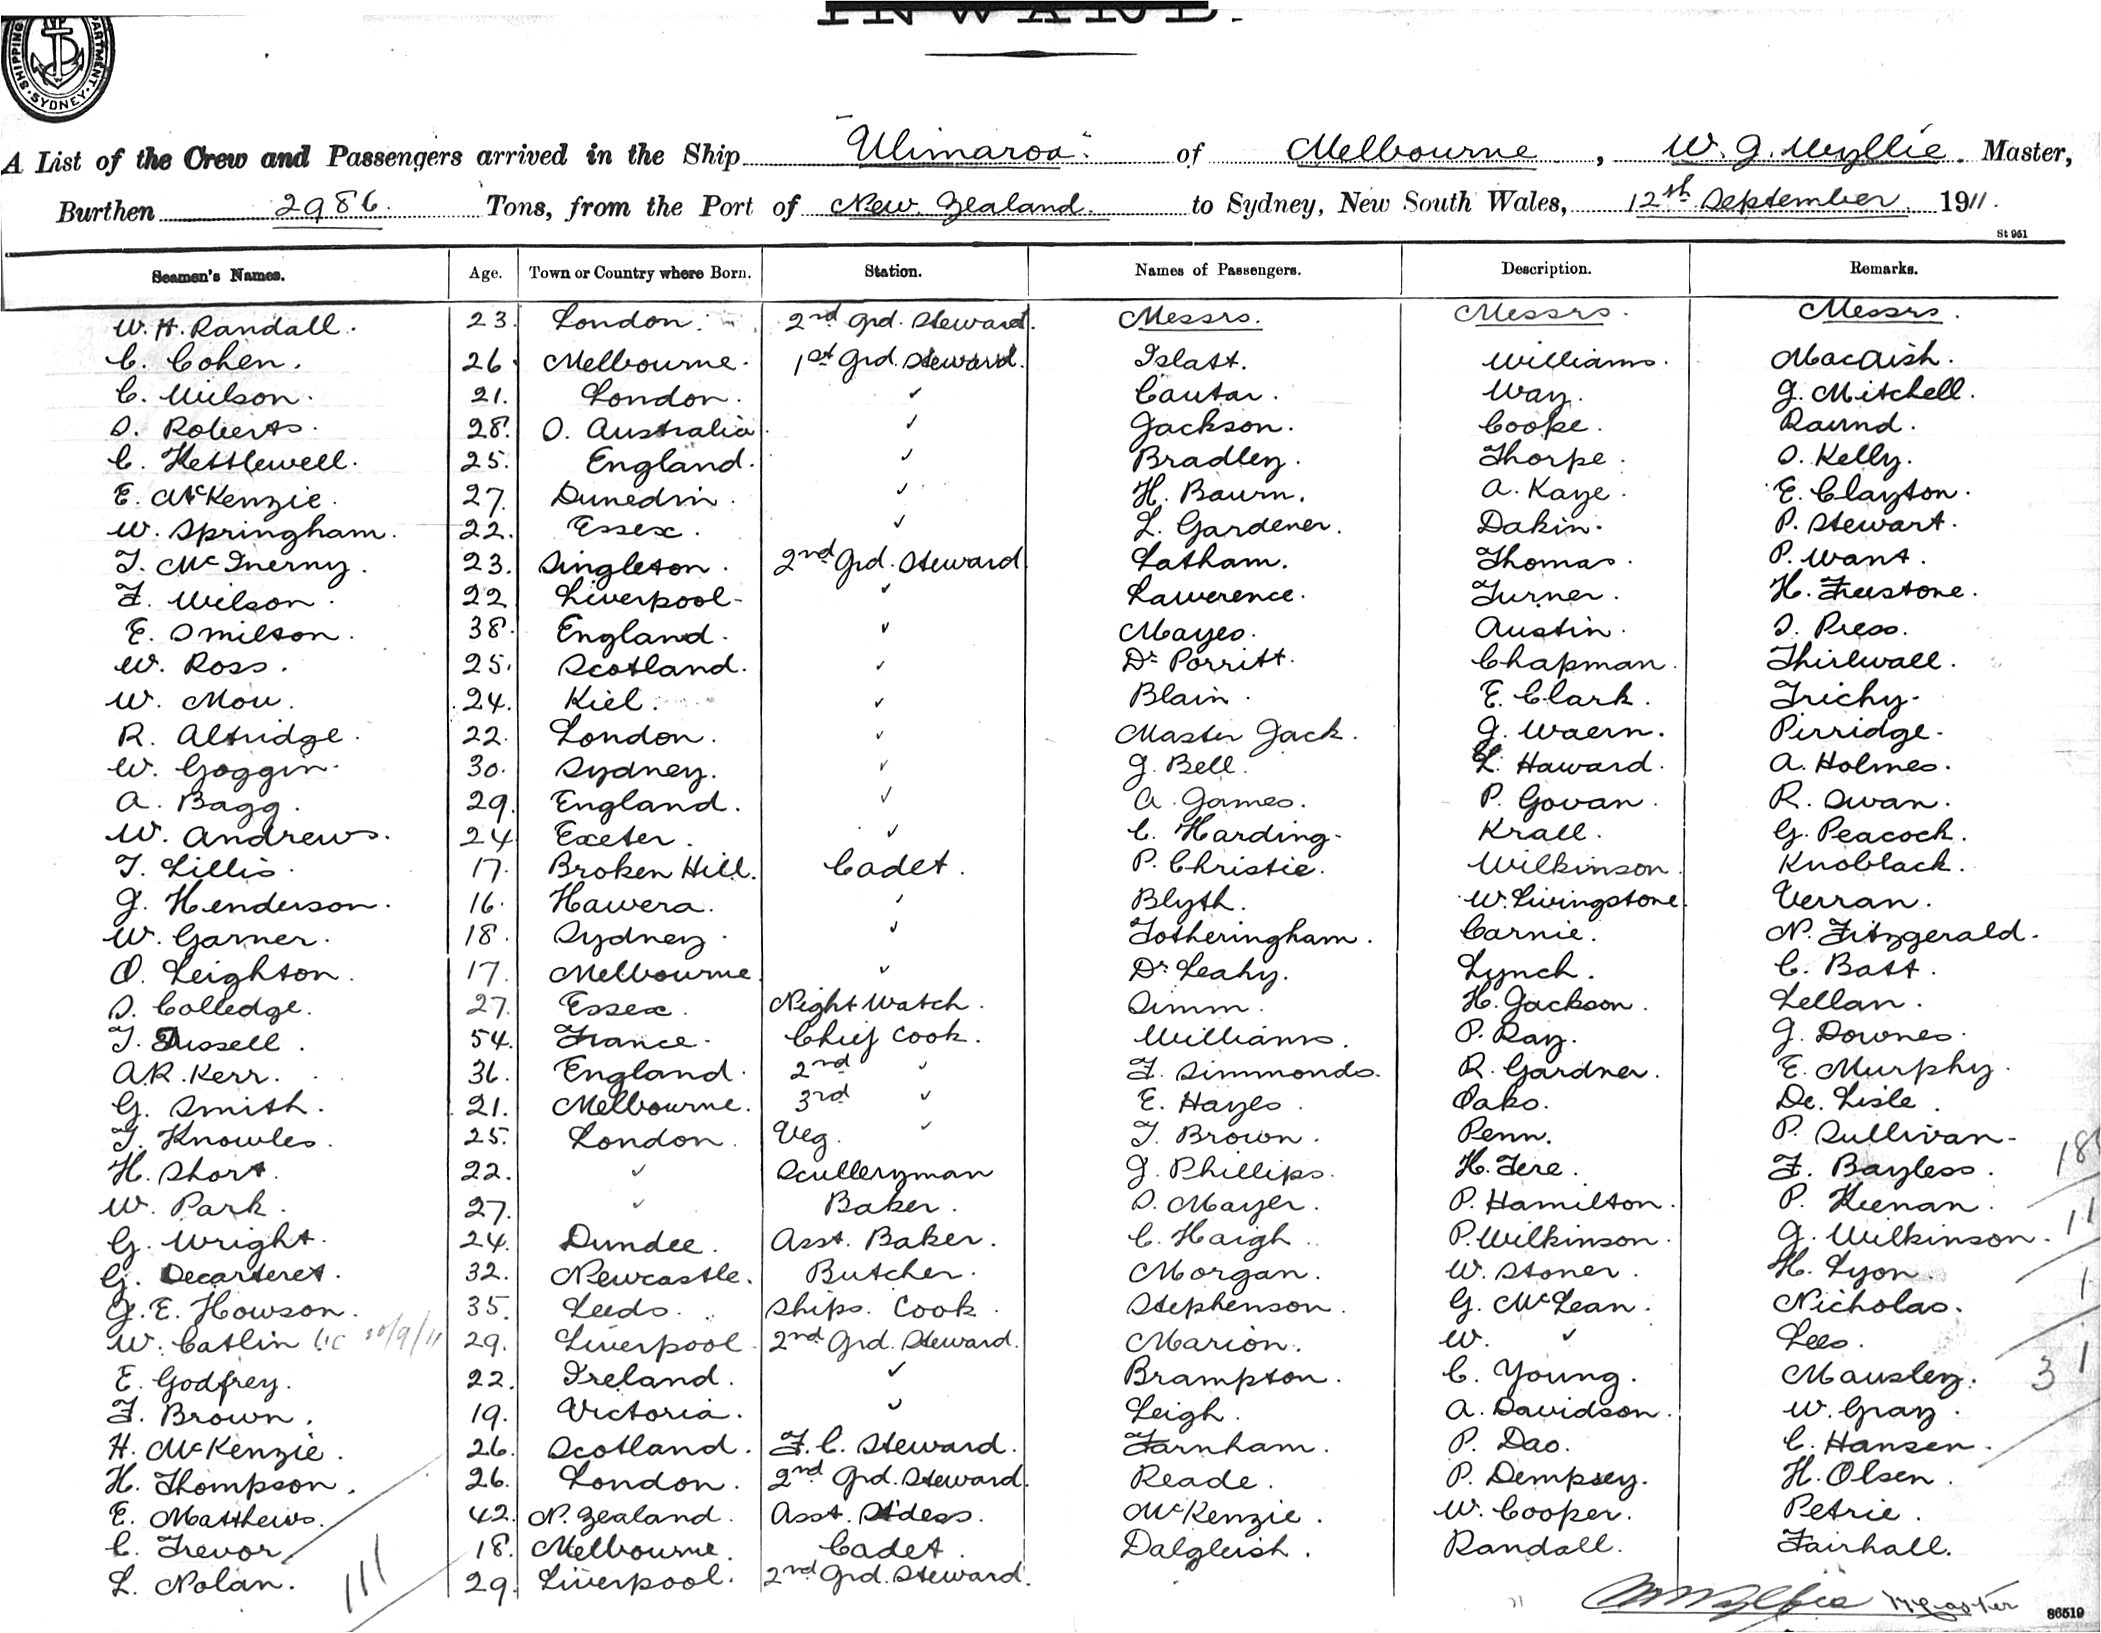 SHIPPING DEPARTMENT. SYDNEY
INWARD.
A List of the Crew and Passengers arrived in the Ship "Ulimaroa" of Melbourne, W. G. Wyllie Master,
Burthen 2986 Tons, from the Port of New Zealand. to Sydney, New South Wales, 12th September 1911.
St 951
Seamen's Names. Age. Town or Country where Born. Station. Names of Passengers. Description. Remarks.
W. H. Randall. 23. London. 2nd Grd. Steward. Messrs. Messrs. Messrs.
C. Cohen. 26. Melbourne. 1st Grd. Steward. Islatt. Williams. MacAish.
C. Wilson. 21. London. ✓ Cautar. Way. G. Mitchell.
S. Roberts. 28. S. Australia. ✓ Jackson. Cooke. Raund.
C. Kettlewell. 25. England. ✓ Bradley. Thorpe. S. Kelly.
E. McKenzie. 27. Dunedin. ✓ H. Bourn. A. Kaye. E. Clayton.
W. Springham. 22. Essex. ✓ L. Gardener. Dakin. P. Stewart.
T. McInerny. 23. Singleton. 2nd Grd. Steward Latham. Thomas. P. Want.
F. Wilson. 22 Liverpool- ✓ Lawerence. Turner. H. Freestone.
E. Smilton. 38. England. ✓ Mayes. Austin. S. Press.
W. Ross. 25. Scotland. ✓ Dr Porritt. Chapman. Thirlwall.
W. Mou. 24. Kiel. ✓ Blain. E. Clark. Trichy.
R. Altridge. 22. London. ✓ Master Jack. G. Waern. Pirridge.
W. Goggin. 30. Sydney. ✓ G. Bell. L. Haward. A. Holmes.
A. Bagg. 29. England. ✓ A. James. P. Govan. R. Swan.
W. Andrews. 24 Exeter. ✓ C. Harding. Krall. G. Peacock.
T. Lillis. 17. Broken Hill. Cadet. P. Christie. Wilkinson. Knoblack.
J. Henderson. 16. Hawera. ✓ Blyth. W. Livingstone. Verran.
W. Garner. 18. Sydney. ✓ Fotheringham. Carnie. N. Fitzgerald.
O. Leighton. 17. Melbourne. ✓ Dr Leahy. Lynch. C. Batt.
S. Colledge. 27. Essex. Night Watch. Simm. H. Jackson. Lellan.
T. Russell. 54. France. Chief Cook. Williams. P. Ray. J. Downes.
A.R. Kerr. 36. England. 2nd ✓ F. Simmonds. R. Gardner. E. Murphy.
G. Smith. 21. Melbourne. 3rd ✓ E. Hayes. Oaks. De. Lisle.
T. Knowles. 25. London. Veg. ✓ T. Brown. Penn. P. Sullivan-
H. Short. 22. ✓ Sculleryman G. Phillips. H. Tere. F. Bayless.
W. Park. 27. ✓ Baker. S. Mayer. P. Hamilton. P. Keenan. 11
G. Wright. 24. Dundee. Asst. Baker. C. Haigh. P. Wilkinson. G. Wilkinson.
G. Decarteret. 32. Newcastle. Butcher. Morgan. W. Stoner. H. Lyon. 1
J. E. Howson. 35. Leeds. Ships. Cook. Stephenson. G. McLean. Nicholas.
W. Catlin 29. Liverpool. 2nd Grd. Steward. Marion. W. ✓ Lees.
E. Godfrey. 22. Ireland. ✓ Brampton. C. Young. Mausley. 31
F. Brown. 19. Victoria. ✓ Leigh. A. Davidson. W. Gray.
H. McKenzie. 26. Scotland. F. C. Steward. Farnham. P. Dao. C. Hansen.
H. Thompson. 26. London. 2nd Grd. Steward. Reade. P. Dempsey. H. Olsen.
E. Matthews. 42. N. Zealand. Asst. Stdess. McKenzie. W. Cooper. Petrie.
C. Trevor 18. Melbourne. Cadet. Dalgleish. Randall. Fairhall.
L. Nolan. 111 29. Liverpool. 2nd Grd. Steward.
W. G. Wyllie Master
86519